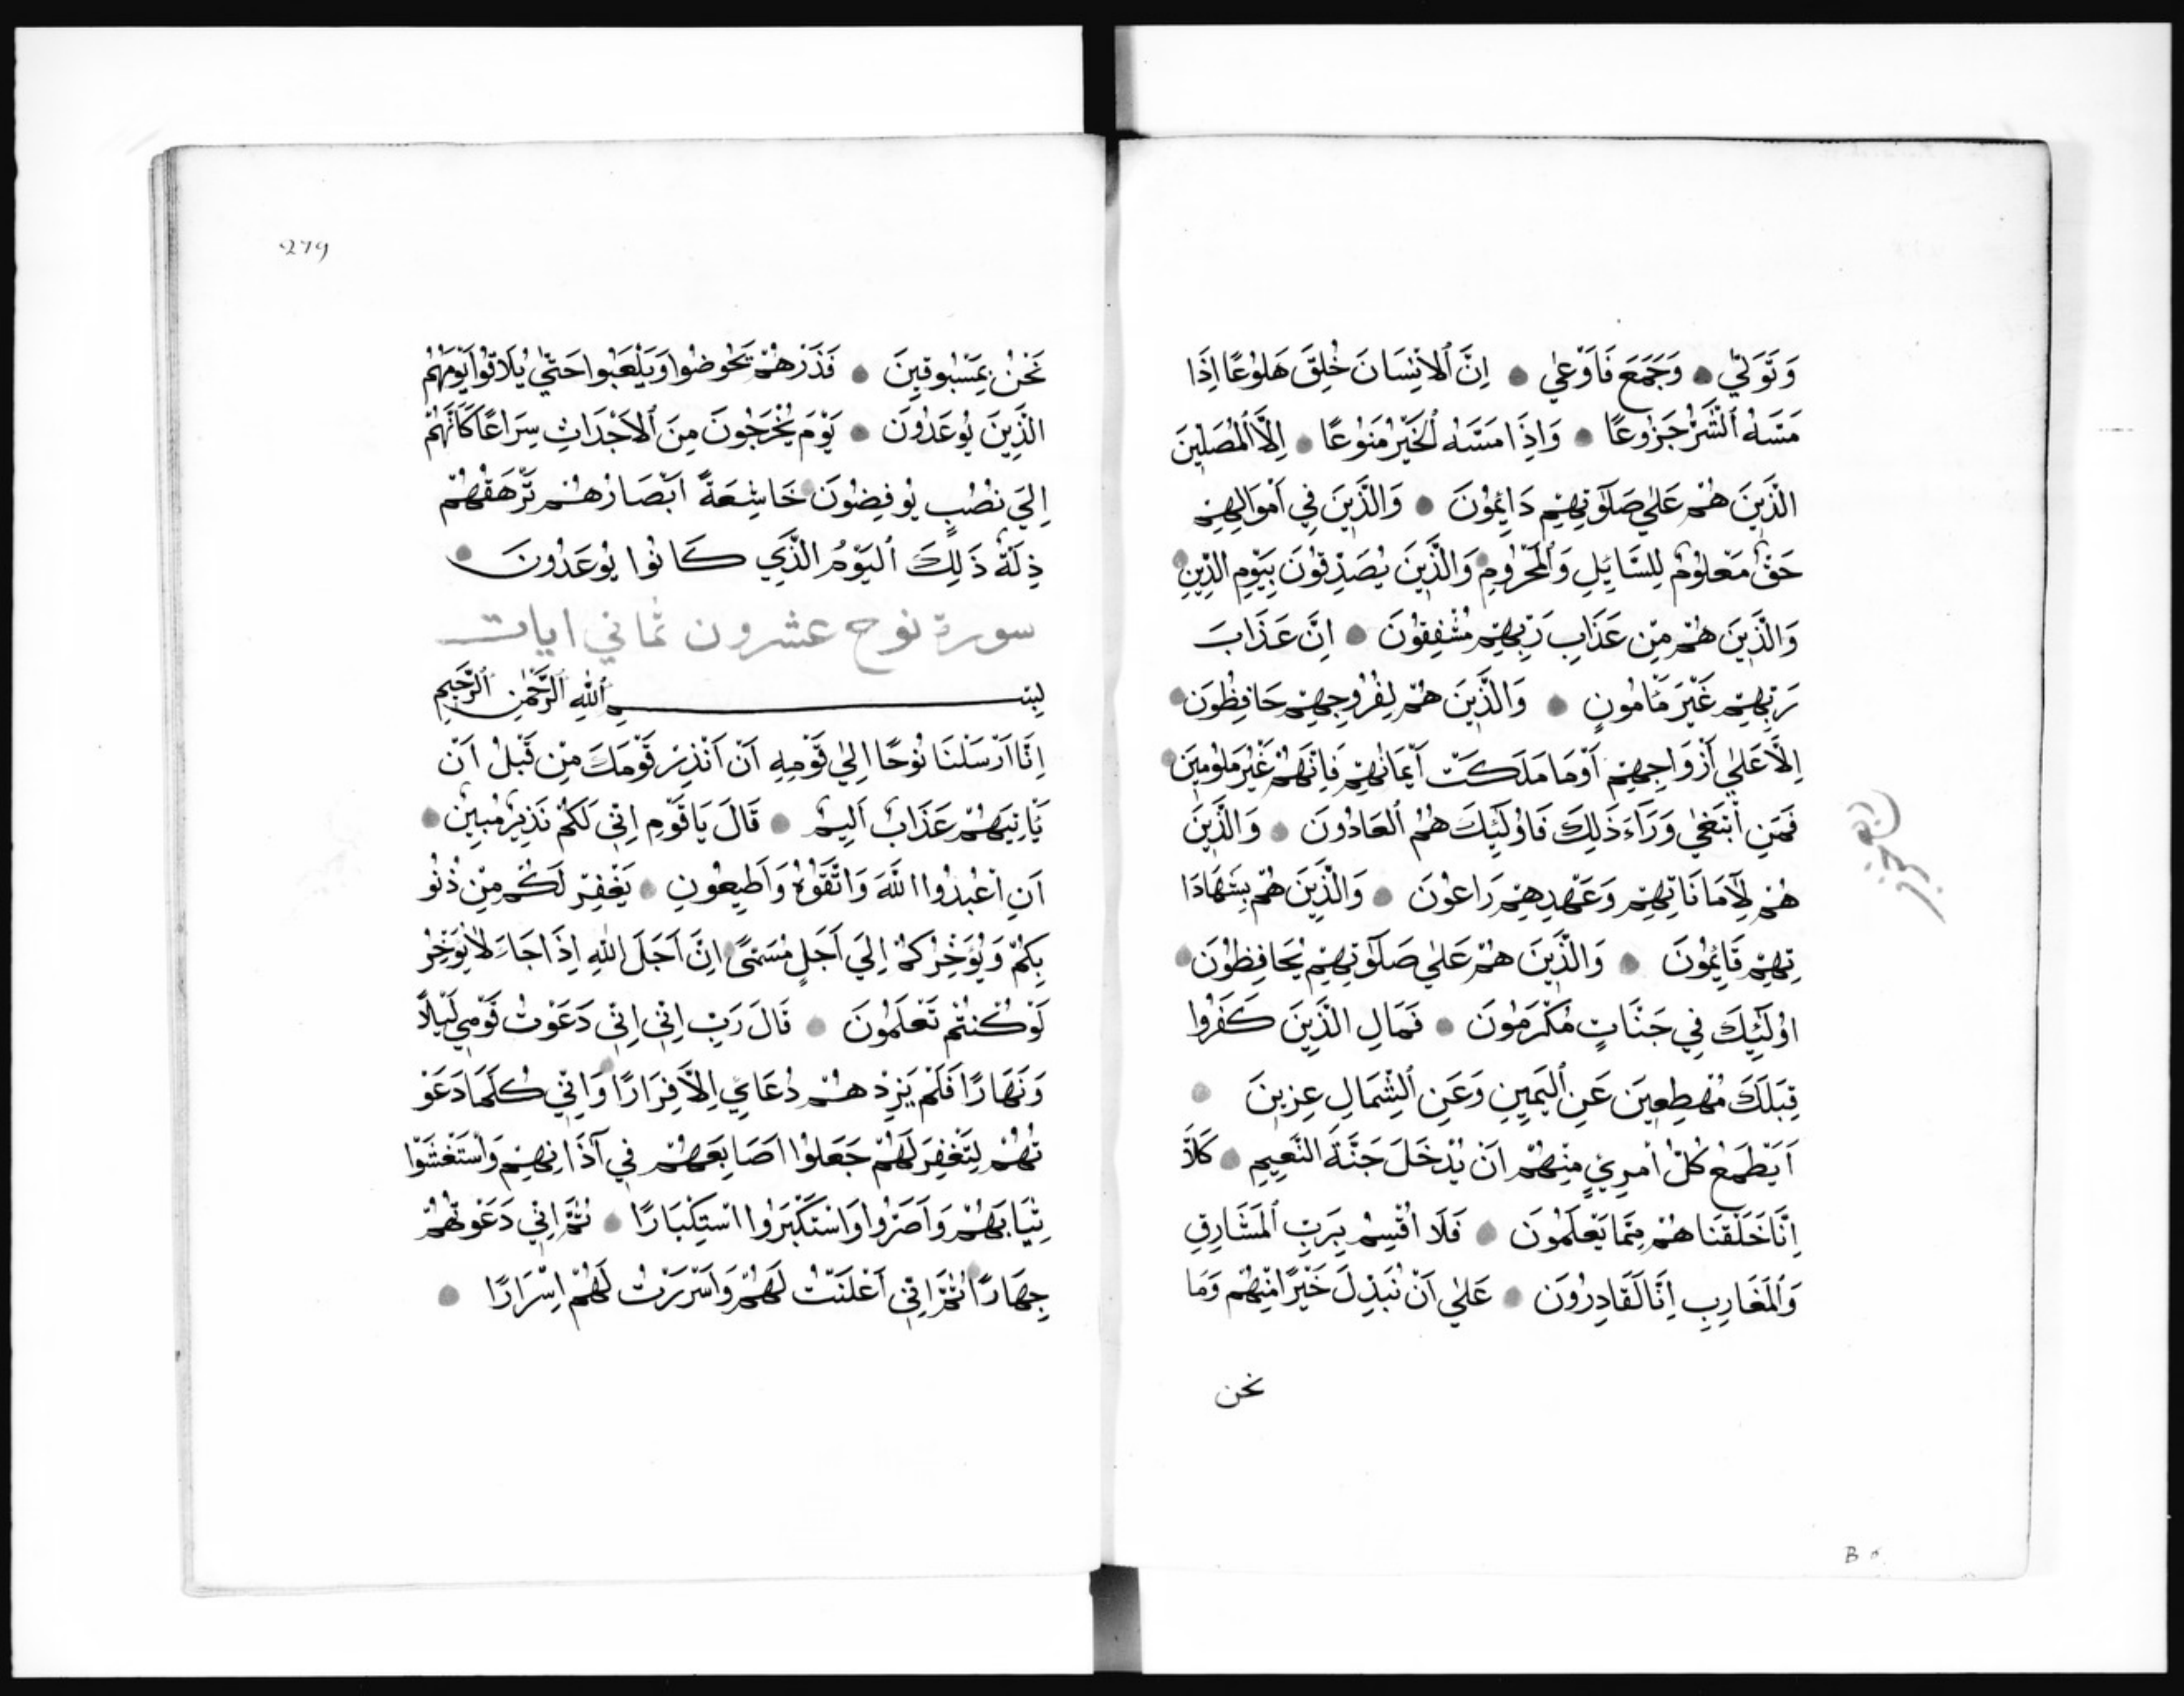 وَتَوَلّٰي وَجَمَعَ فَاَوْعٰي اِنَّ ٱلاِنْسَانَ خُلِقَ هَلُوْعًا اِذَا
مَسَّهُ ٱلشَّرُّ جَزُوعًا وَاِذَا مَسَّهُ ٱلخَيْرُ مَنُوْعًا اِلَّا ٱلْمُصَلِّينَ
الَّذِينَ هُمْ عَلٰي صَلَوٰتِهِمْ دَائِمُوْنَ وَالَّذِينَ فِي اَمْوَالِهِمْ
حَقٌّ مَعْلُوْمٌ لِلسَّايِٕلِ وَٱلْمَحْرُومِ وَالَّذِينَ يُصَدِّقُوْنَ بِيَوْمِ الدِّيْنِ
وَالَّذِينَ هُمْ مِنْ عَذَابِ رَبِّهِمْ مُشْفِقُوْنَ اِنَّ عَذَابَ
رَبِّهِمْ غَيْرَ مَٔامُونٍ وَالَّذِينَ هُمْ لِفُرُوجِهِمْ حَافِظُوْنَ
اِلَّا عَلٰي اَزْوَاجِهِمْ اَوْ مَا مَلَكَتْ اَيْمَانُهُمْ فَاِنَّهُمْ غَيْرُ مَلُوْمِينَ
فَمَنِ ٱبْتَغٰي وَرَآءَ ذَلِكَ فَاُوْلَئِكَ هُمُ ٱلعَادُوْنَ وَالَّذِينَ
هُمْ لِاَمَانَاتِهِمْ وَعَهْدِهِمْ رَاعُوْنَ وَالَّذِينَ هُمْ بِشَهَادَا
تِهِمْ قَائِمُوْنَ وَالَّذِينَ هُمْ عَلٰي صَلَوٰتِهِمْ يُحَافِظُوْنَ
اُوْلَئِكَ فِي جَنَّاتٍ مُكْرَمُوْنَ فَمَالِ الَّذِينَ كَفَرُوا
قِبَلَكَ مُهْطِعِينَ عَنِ ٱليَمِينِ وَعَنِ ٱلشِّمَالِ عِزِينَ
اَيَطْمَعُ كُلُّ امْرِئٍ مِنْهُمْ اَنْ يُدْخَلَ جَنَّةَ النَّعِيمِ كَلَّا
اِنَّا خَلَقْنَاهُمْ مِمَّا يَعْلَمُوْنَ فَلَا اُقْسِمُ بِرَبِّ ٱلمَشَارِقِ
وَٱلمَغَارِبِ اِنَّا لَقَادِرُوْنَ عَلٰي اَنْ نُبَدِّلَ خَيْرًا مِنْهُمْ وَمَا
نحن
B
279
نَحْنُ بِمَسْبُوقِينَ فَذَرْهُمْ يَخُوضُوا وَيَلْعَبُوا حَتّٰي يُلَاقُوا يَوْمَهُمُ
الَّذِينَ يُوْعَدُوْنَ يَوْمَ يَخْرُجُوْنَ مِنَ ٱلاَجْدَاثِ سِرَاعًا كَاَنَّهُمْ
اِلَي نُصُبٍ يُوْفِضُوْنَ خَاشِعَةً اَبْصَارُهُمْ تَرْهَقُهُمْ
ذِلَّةٌ ذَلِكَ ٱليَوْمُ الَّذِي كَانُوا يُوْعَدُوْنَ
سورة نوح عشرون ثماني ايات
بِسْمِ ٱللّٰهِ ٱلرَّحْمٰنِ ٱلرَّحِيمِ
اِنَّا اَرْسَلْنَا نُوْحًا اِلٰي قَوْمِهِ اَنْ اَنْذِرْ قَوْمَكَ مِنْ قَبْلُ اَنْ
ئَاتِيَهُمْ عَذَابٌ اَلِيمٌ قَالَ يَا قَوْمِ اِنِّي لَكُمْ نَذِيْرٌ مُبِيْنٌ
اَنِ اعْبُدُوا اللّٰهَ وَاتَّقُوْهُ وَاَطِيعُوْنِ يَغْفِرْ لَكُمْ مِنْ ذُنُو
بِكُمْ وَيُؤَخِّرْكُمْ اِلَي اَجَلٍ مُسَمًّي اِنَّ اَجَلَ اللّٰهِ اِذَا جَاءَ لَا يُؤَخَّرُ
لَوْ كُنْتُمْ تَعْلَمُوْنَ قَالَ رَبِّ اِنِّي اِنِّي دَعَوْتُ قَوْمِي لَيْلًا
وَنَهَارًا فَلَمْ يَزِدْهُمْ دُعَائِي اِلَّا فِرَارًا وَاِنِّي كُلَّمَا دَعَوْ
تُهُمْ لِتَغْفِرَ لَهُمْ جَعَلُوْا اَصَابِعَهُمْ فِي آذَانِهِمْ وَاسْتَغْشَوْا
ثِيَابَهُمْ وَاَصَرُّوا وَاسْتَكْبَرُوا اسْتِكْبَارًا ثُمَّ اِنِّي دَعَوْتُهُمْ
جِهَارًا ثُمَّ اِنِّي اَعْلَنْتُ لَهُمْ وَاَسْرَرْتُ لَهُمْ اِسْرَارًا